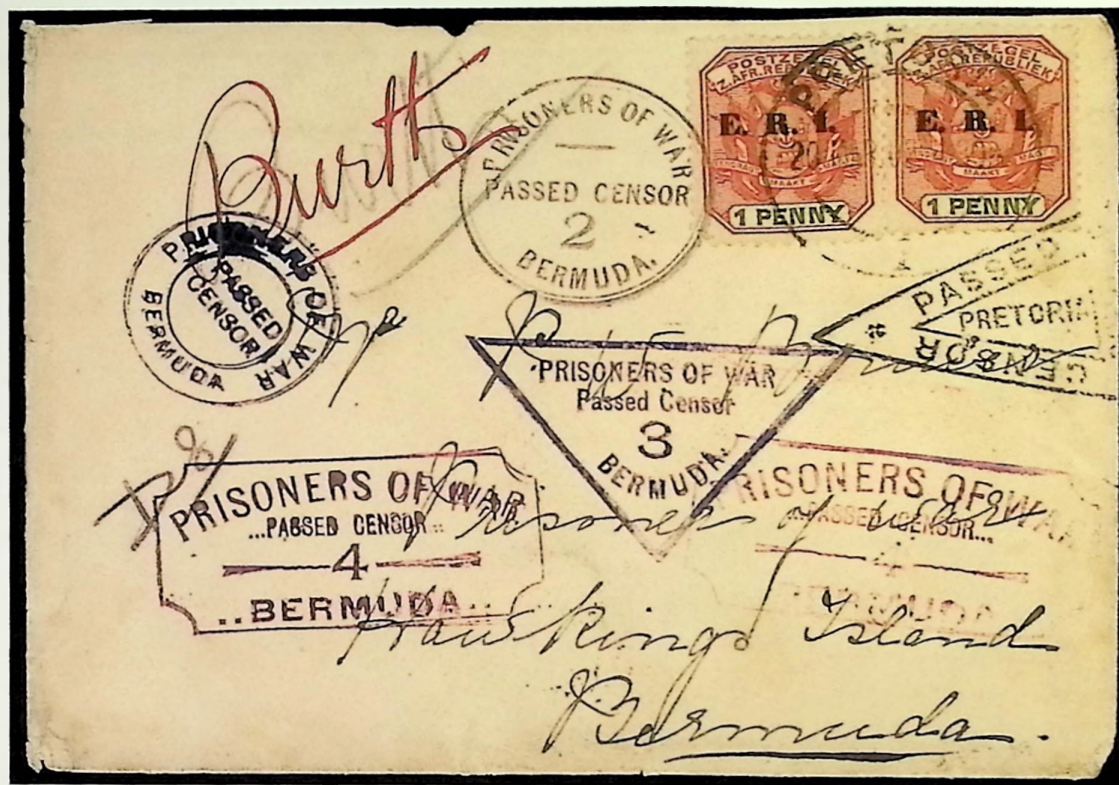 Burtt
PRISONERS OF WAR
PASSED CENSOR
2
BERMUDA.
POSTZEGEL
Z.AFR.REPUBLIEK
E. R. I.
MAAKT
1 PENNY
POSTZEGEL
Z.AFR.REPUBLIEK
E. R. I.
MAAKT
1 PENNY
PRISONERS OF WAR
PASSED
CENSOR
BERMUDA
PASSED
PRETORIA
CENSOR
PRISONERS OF WAR
Passed Censor
3
BERMUDA.
PRISONERS OF WAR
...PASSED CENSOR..
4
..BERMUDA..
PRISONERS OF WAR
...PASSED CENSOR...
4
BERMUDA
Prisoner of War
Hawkings Island
Bermuda.